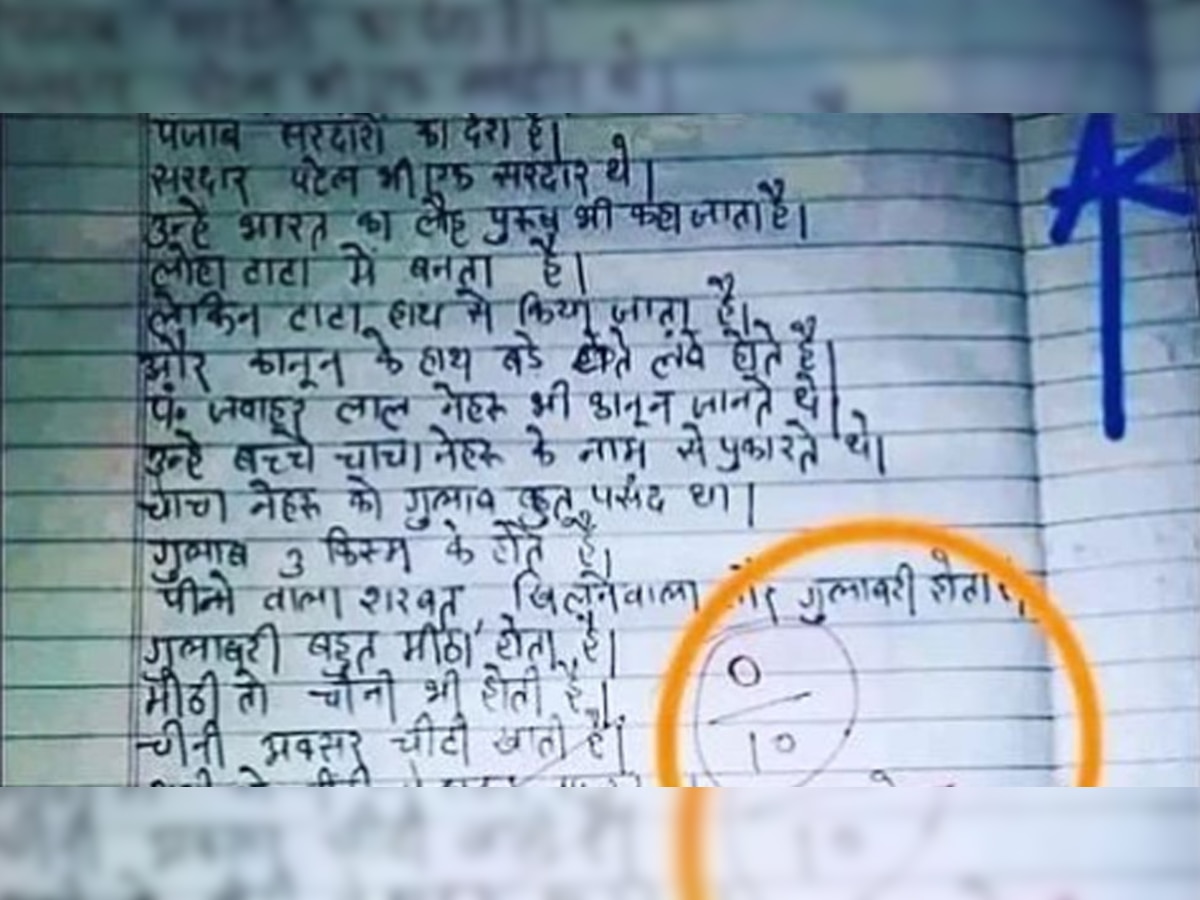 पंजाब सरदारों का देश है।
सरदार पटेल भी एक सरदार थे।
उन्हे भारत का लौह पुरूष भी कहा जाता है।
लोहा टाटा में बनता है।
लेकिन टाटा हाथ से किया जाता है।
और कानून के हाथ बडे होते लंबे होते है।
पं. जवाहर लाल नेहरू भी कानून जानते थे।
उन्हे बच्चे चाचा नेहरू के नाम से पुकारते थे।
चाचा नेहरू को गुलाब बहुत पसंद था।
गुलाब 3 किस्म के होते है।
पीने वाला शरबत, खिलनेवाला और गुलाबरी होता
गुलाबरी बहुत मीठा होता है।
मीठी तो चीनी भी होती है।
चीनी अक्सर चीटी खाती है।
0
10